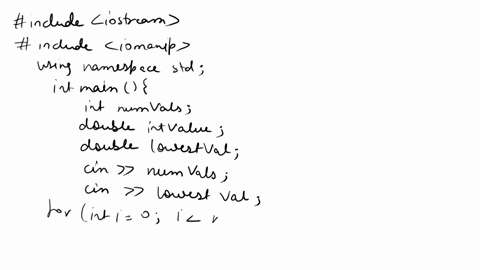 #include <iostream>
# include <iomanip>
using namespace std;
int main () {
int numVals;
double intValue;
double lowestVal;
cin >> numVals;
cin >> lowest Val;
for (int i = 0; i <